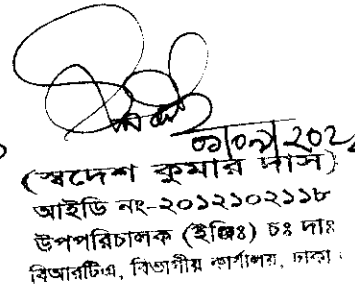 (স্বদেশ কুমার দাস)
আইডি নং-২০১২১০২১১৮
উপপরিচালক (ইঞ্জিঃ) চঃ দাঃ
বিআরটিএ, বিভাগীয় কার্যালয়, ঢাকা ।